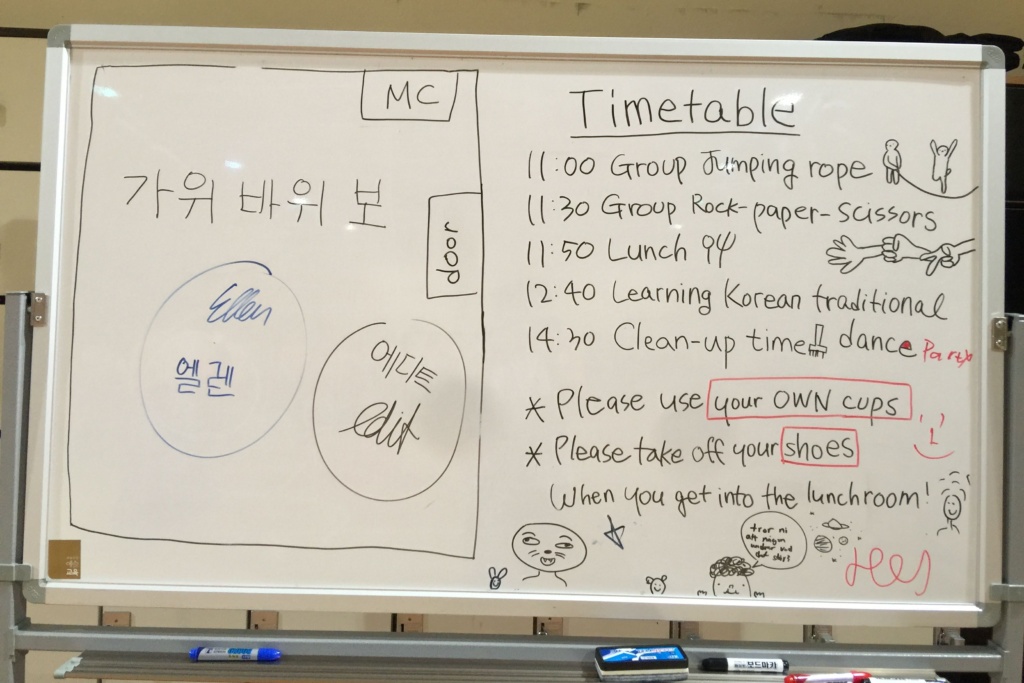 MC
가위 바위 보
door
Ellen
엘렌
에디트
edit
Timetable
11:00 Group Jumping rope
11:30 Group Rock-paper-scissors
11:50 Lunch
12:40 Learning Korean traditional
14:30 Clean-up time dance Party
* Please use your OWN cups
* Please take off your shoes
When you get into the lunchroom!
tror ni
att någon
und
Hej
보드마카